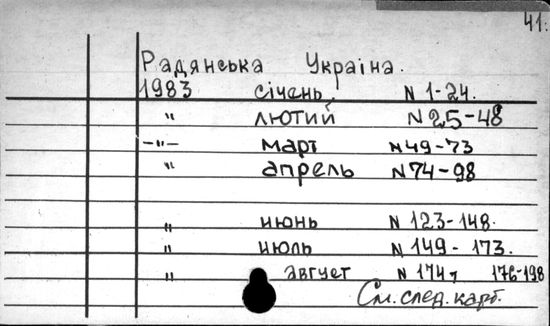 41.
Радянська Україна.
1983 січень N 1-24.
" лютий N 25-48
-"- март N 49-73
" апрель N 74-98
" июнь N 123-148.
" июль N 149-173.
" август N 174, 176-198
См. след. карт.